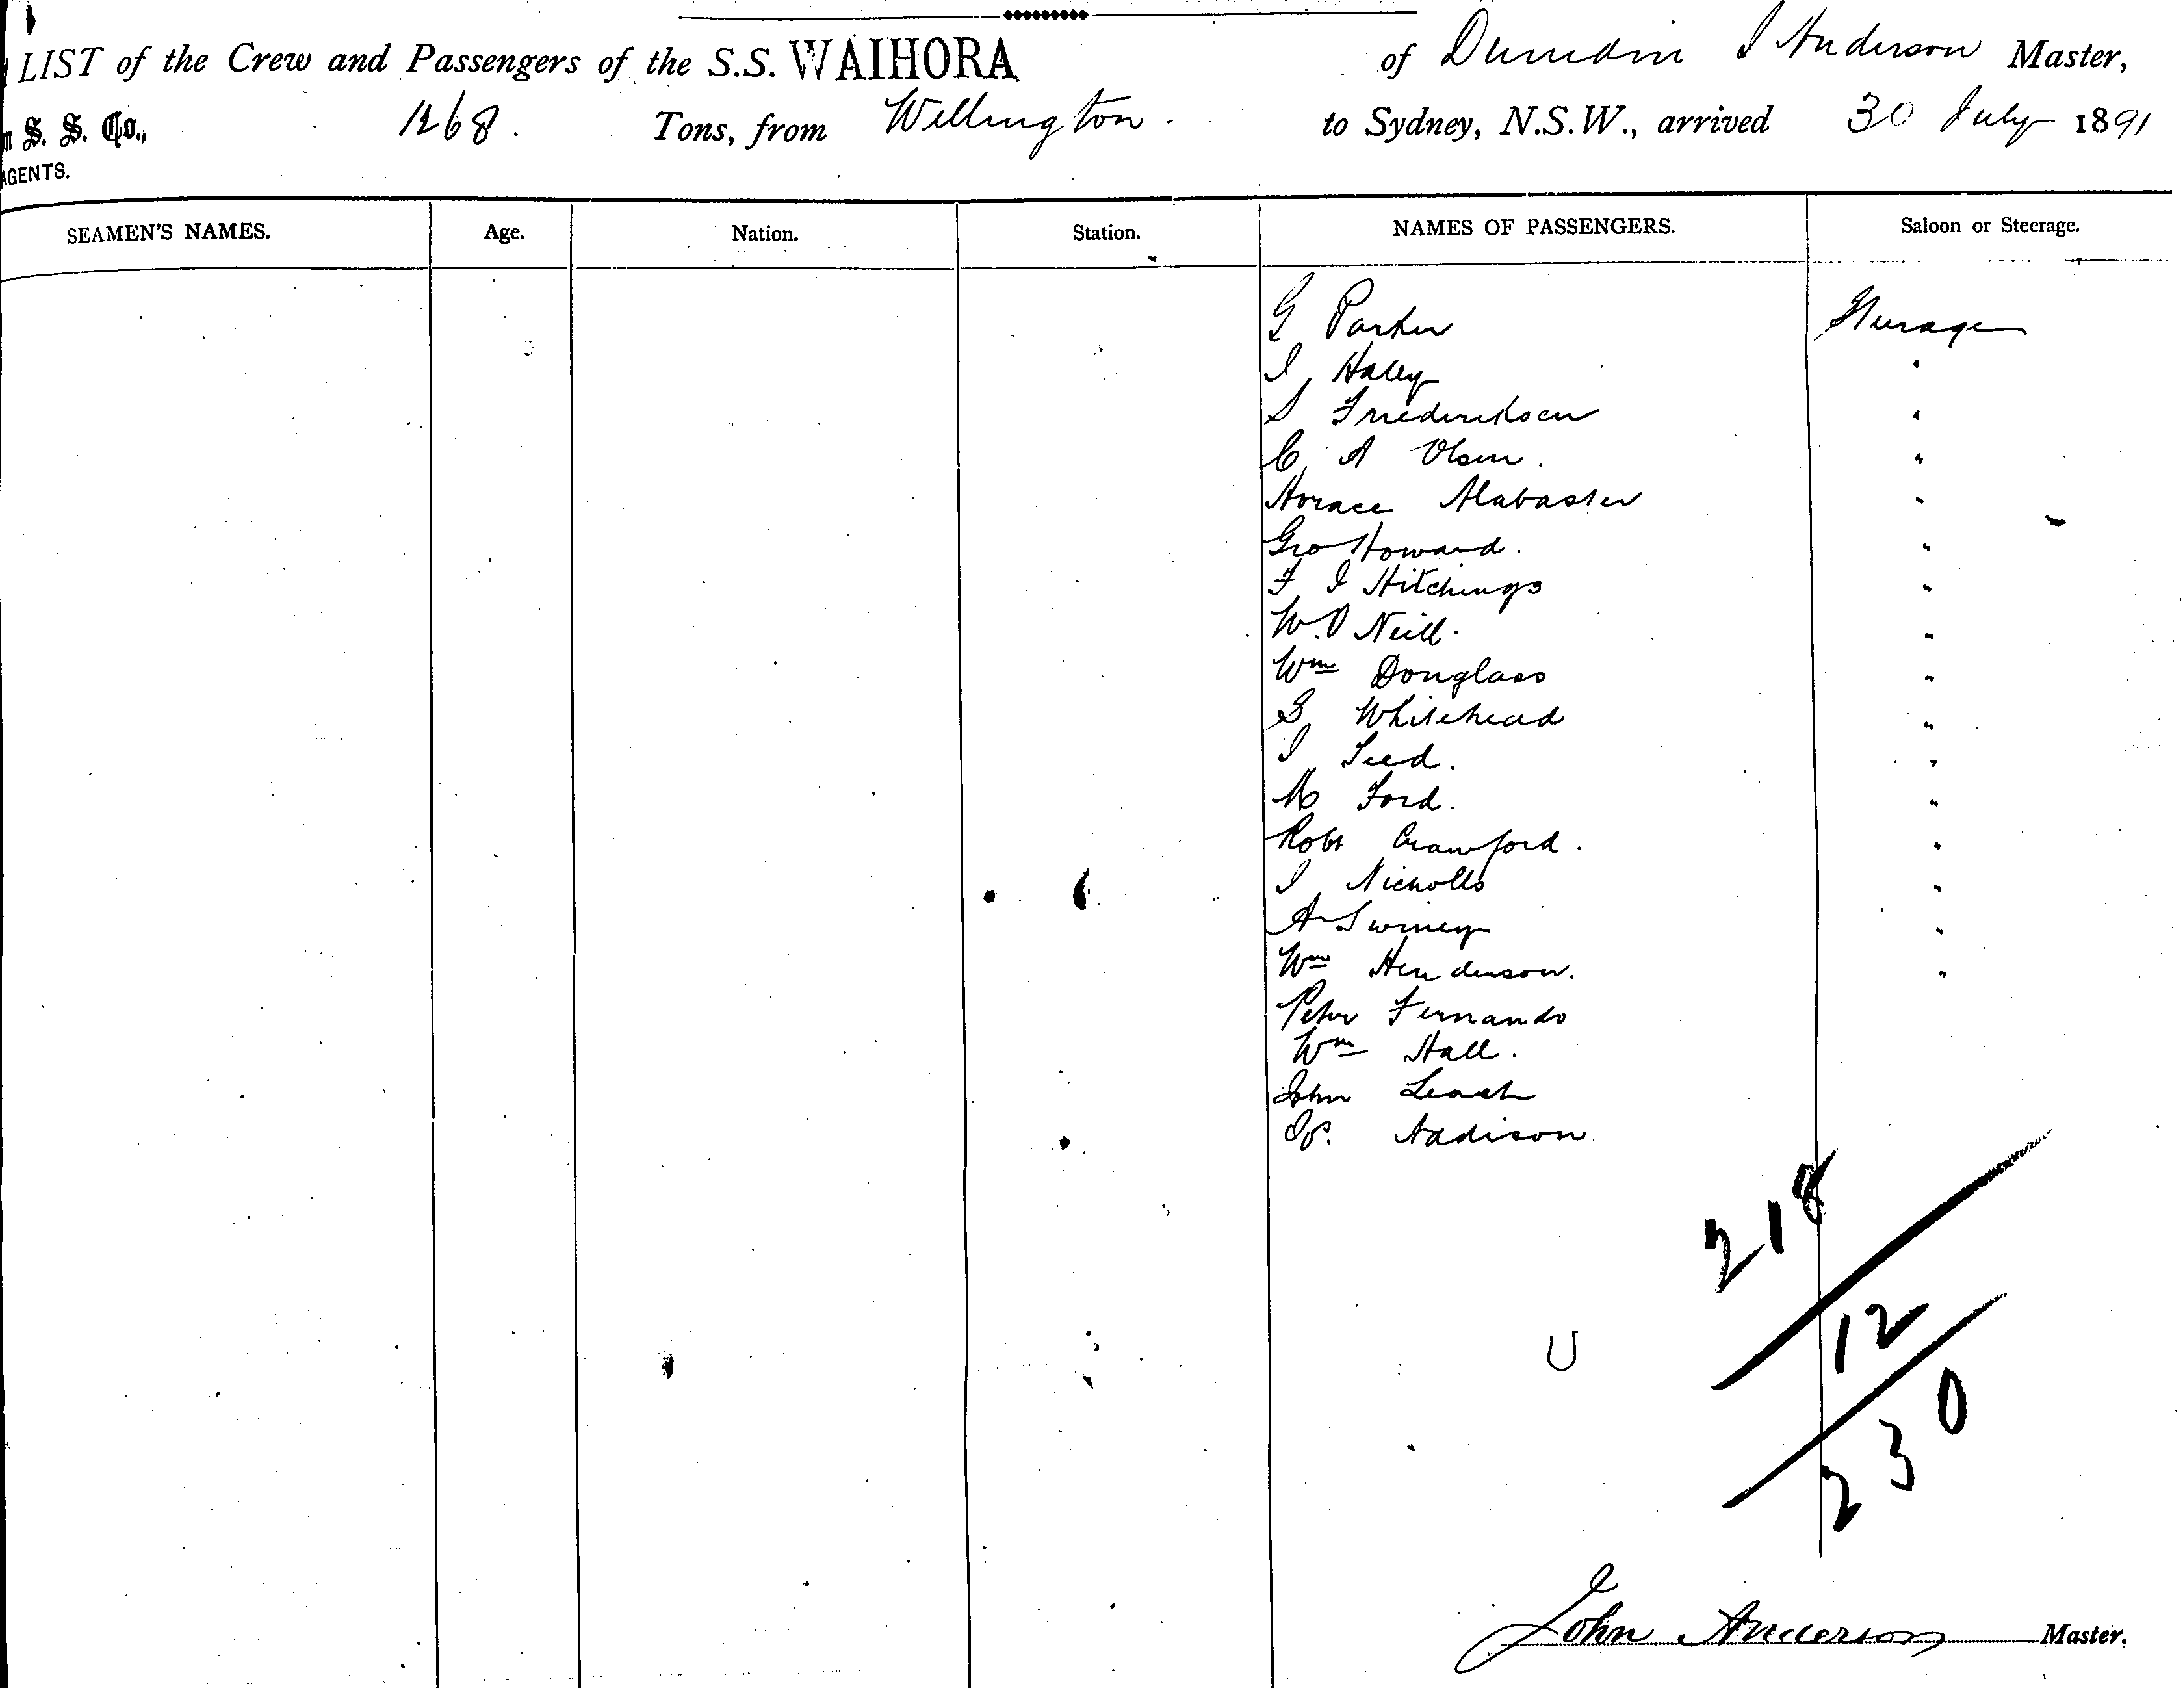 LIST of the Crew and Passengers of the S.S. WAIHORA of Dunedin J Anderson Master,
S. S. Co., 1268. Tons, from Wellington. to Sydney, N.S.W., arrived 30 July 1891
AGENTS.
SEAMEN'S NAMES. Age. Nation. Station. NAMES OF PASSENGERS. Saloon or Steerage.
G Parker Steerage
J Haley "
S Friederiksen "
C A Olsen. "
Horace Alabaster "
Geo Howard. "
F J Hitchings "
W. O Neill. "
Wm Douglass "
G Whitehead "
J Seed. "
M Ford. "
Robt Crawford. "
J Nicholls "
A Swiney "
Wm Henderson. "
Peter Fernando
Wm Hall.
John Leach
Addison
218
12
230
John Anderson Master.